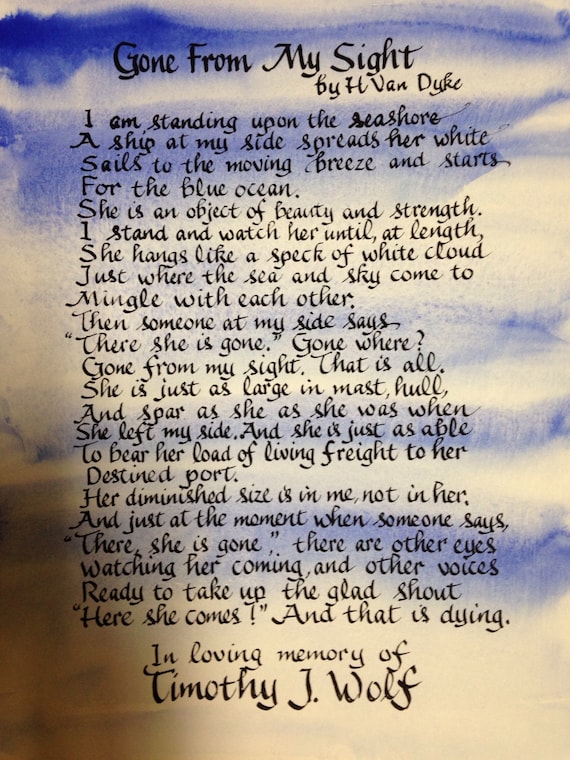 Gone From My Sight
by H Van Dyke
I am standing upon the seashore
A ship at my side spreads her white
Sails to the moving breeze and starts
For the blue ocean.
She is an object of beauty and strength.
I stand and watch her until, at length,
She hangs like a speck of white cloud
Just where the sea and sky come to
Mingle with each other.
Then someone at my side says
"There she is gone." Gone where?
Gone from my sight. That is all.
She is just as large in mast, hull,
And spar as she as she was when
She left my side. And she is just as able
To bear her load of living freight to her
Destined port.
Her diminished size is in me, not in her.
And just at the moment when someone says,
"There, she is gone", there are other eyes
Watching her coming, and other voices
Ready to take up the glad shout
"Here she comes!" And that is dying.
In loving memory of
Timothy J. Wolf